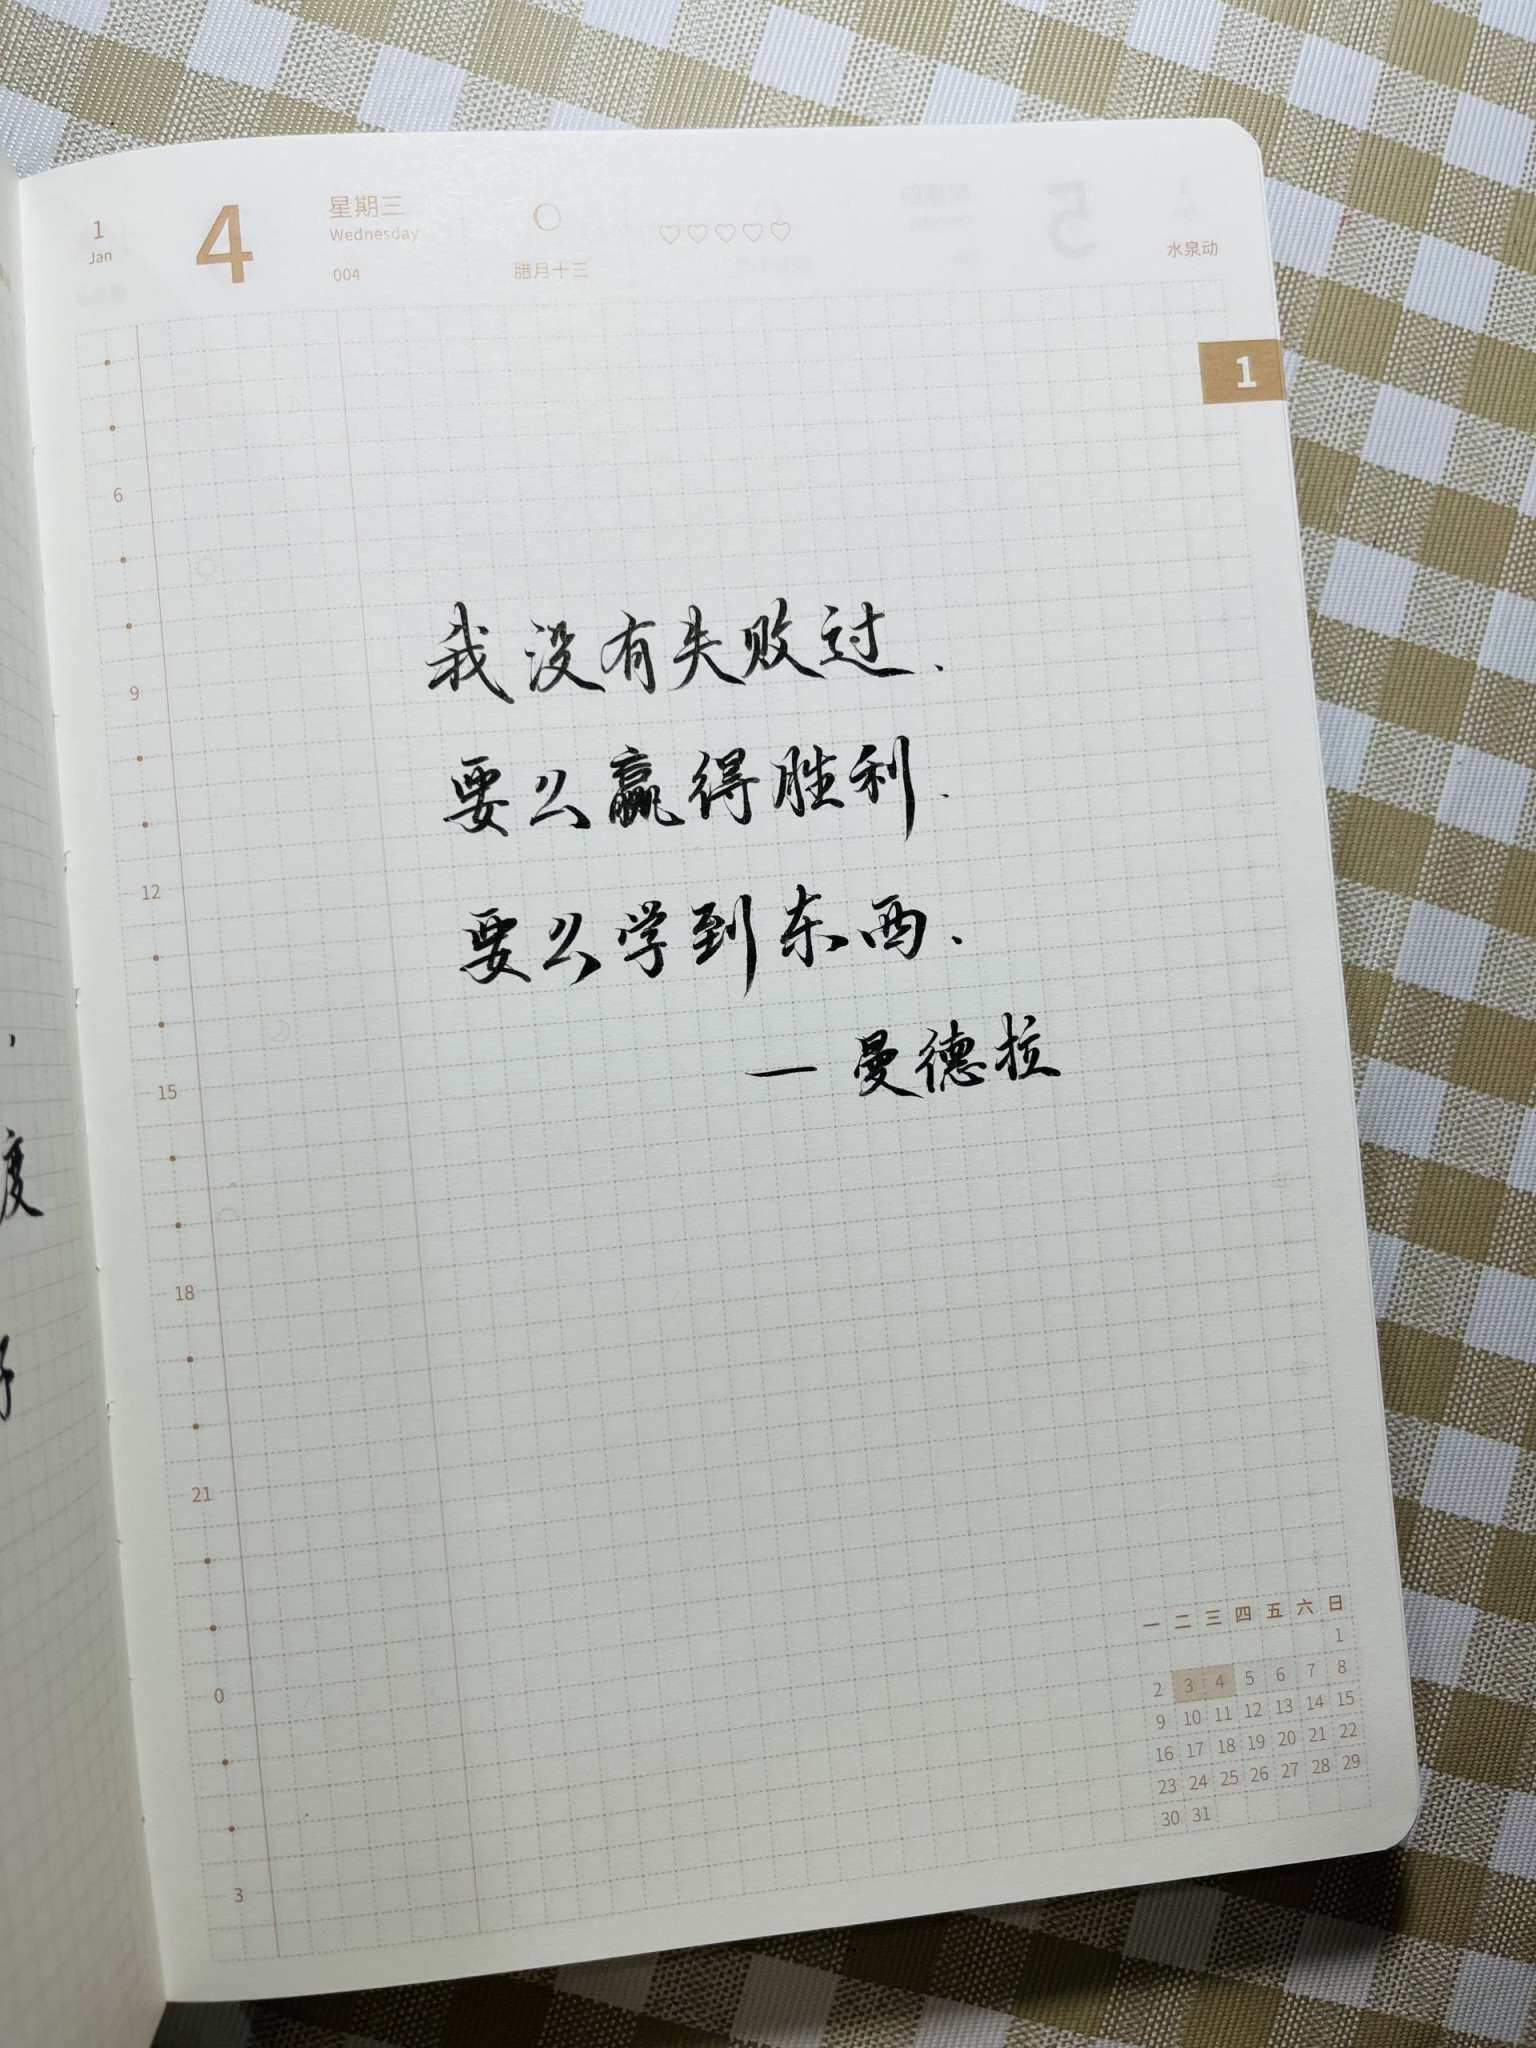 1
Jan
4
星期三
Wednesday
004
腊月十三
水泉动
1
6
9
12
15
18
21
0
3
我没有失败过.
要么赢得胜利.
要么学到东西.
一曼德拉
度
一 二 三 四 五 六 日
1
2 3 4 5 6 7 8
9 10 11 12 13 14 15
16 17 18 19 20 21 22
23 24 25 26 27 28 29
30 31